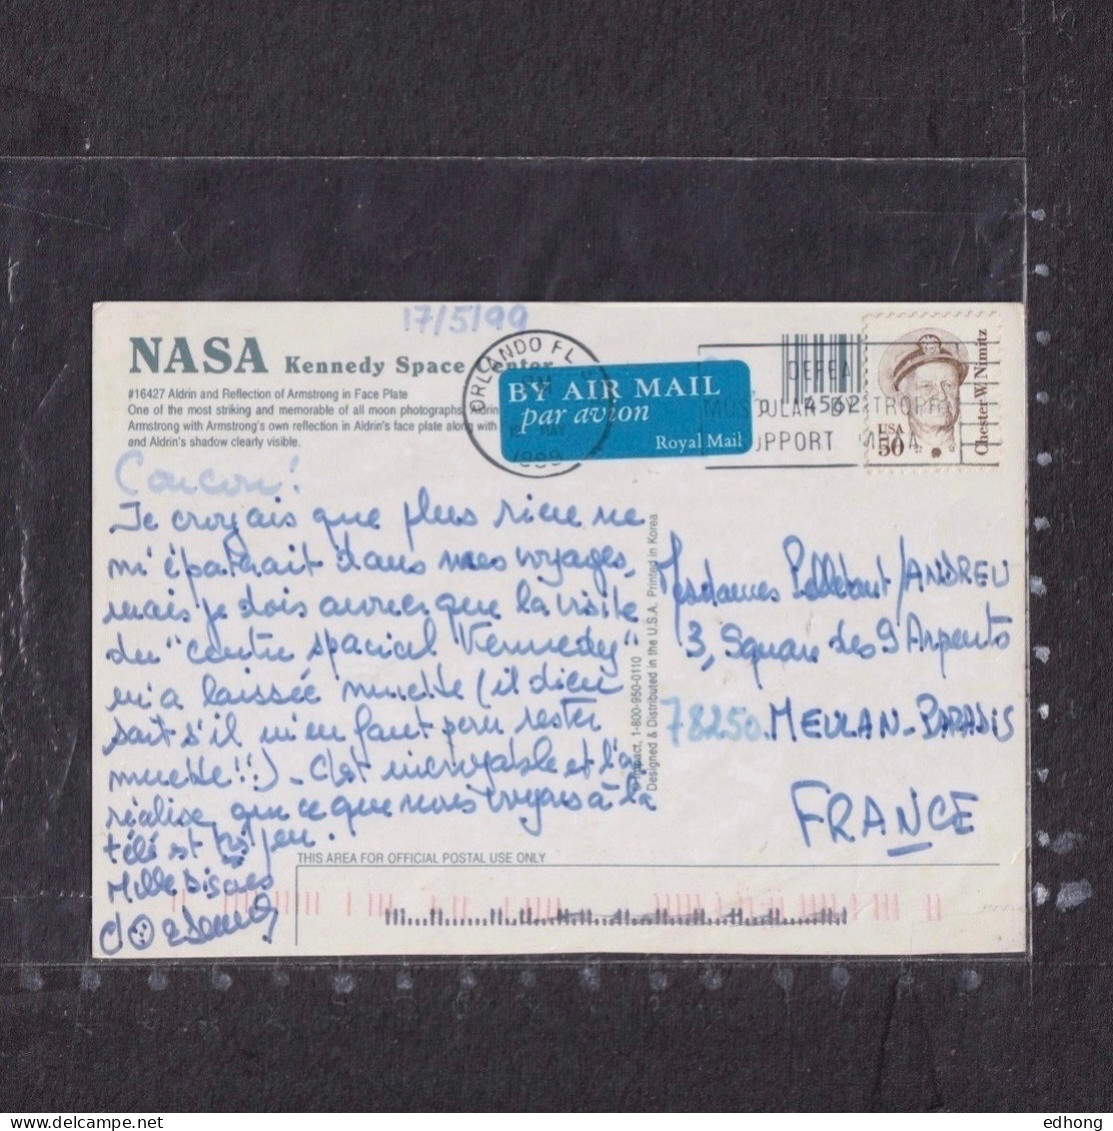 17/5/99
NASA Kennedy Space Center
#16427 Aldrin and Reflection of Armstrong in Face Plate
One of the most striking and memorable of all moon photographs,
Armstrong with Armstrong's own reflection in Aldrin's face plate along with
and Aldrin's shadow clearly visible.
ORLANDO FL
1999
BY AIR MAIL
par avion
Royal Mail
MUSCULAR DYSTROPHY
SUPPORT MDAA
USA
50
Chester W. Nimitz
Coucou!
Je croyais que plus rien ne
m'épaterait dans mes voyages,
mais je dois avouer que la visite
du "centre spacial Kennedy"
m'a laissée muette (et dieu
sait s'il m'en faut pour rester
muette!!). C'est incroyable et l'on
réalise que ce que nous voyons à la
télé est bien peu.
Mille bisous
Designed & Distributed in the U.S.A. Printed in Korea
1-800-950-0110
Mesdames /ANDREU
3, Square des 9 Arpents
78250. MEULAN-PARADIS
FRANCE
THIS AREA FOR OFFICIAL POSTAL USE ONLY
edhong